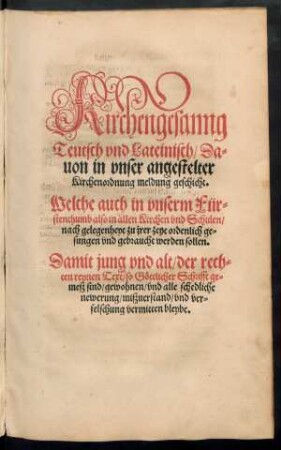 Kirchengesanng
Teutsch vnd Lateinisch/ Da-
uon in vnser angestelter
Kirchenordnung meldung geschicht.
Welche auch in vnserm Für-
stenthumb also in allen Kirchen vnd Schulen/
nach gelegenheyt zu jrer zeyt ordenlich ge-
sungen vnd gebraucht werden sollen.
Damit jung vnd alt/ der rech-
ten reynen Text/ so Göttlicher Schrifft ge-
meß sind/ gewohnen/ vnd alle schedliche
newerung/ mißuerstand/ vnd ver-
felschung vermitten bleybe.